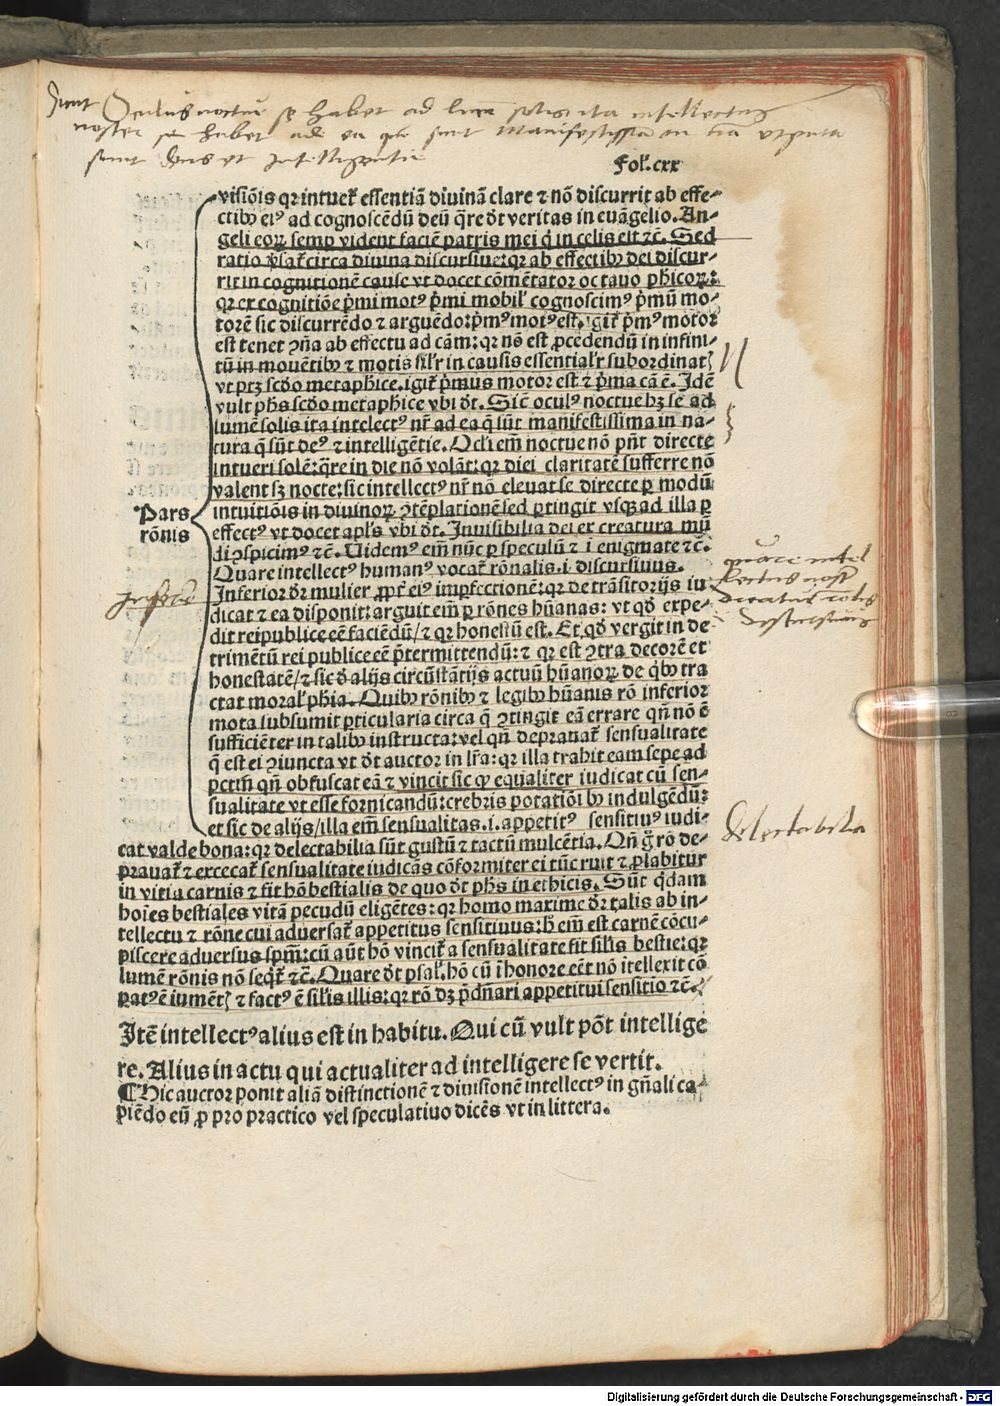 Sicut Oculus noctue se habet ad lucem solis ita intellectus
noster se habet ad ea que sunt Manifestissima in natura utputa
sunt deus et Intelligentie
Fol. cxx
visiõis qꝛ intuet᷑ essentiã diuinã clare ⁊ nõ discurrit ab effe-
ctibꝰ eiꝰ ad cognoscẽdũ deũ q̃re dt̃ veritas in euãgelio. An-
geli eoꝝ semꝑ vident faciẽ patris mei q̇ in celis est ⁊c̃. Sed
ratio v̓sat᷑ circa diuina discursiue: qꝛ ab effectibꝰ dei discur-
rit in cognitionẽ cause vt docet cõmẽtator octauo ph̃icoꝝ:
qꝛ ex cognitiõe p̓mi motꝰ p̓mi mobil̓ cognoscimꝰ p̓mũ mo-
torẽ sic discurrẽdo ⁊ arguẽdo: p̓mꝰ motꝰ est. igit᷑ p̓mꝰ motor
est tenet ꝯña ab effectu ad cãm: qꝛ nõ est ꝓcedendũ in infini-
tũ in mouẽtibꝰ ⁊ motis sil̓r in causis essential̓r subordinatꝭ
vt ptꝫ scd̓o metaph̃ice. igit᷑ p̓mus motor est ⁊ p̓ma cã ẽ. Idẽ
vult ph̃s scd̓o metaph̃ice vbi dt̃. Sic̃ oculꝰ noctue hꝫ se ad
lumẽ solis ita intelectꝰ nr̃ ad ea q̃ sũt manifestissima in na-
tura q̃ sũt deꝰ ⁊ intelligẽtie. Ocl̓i em̃ noctue nõ pñt directe
intueri solẽ: q̃re in die nõ volãt: qꝛ diei claritatẽ sufferre nõ
valent sꝫ nocte: sic intellectꝰ nr̃ nõ eleuat se directe ꝑ modũ
intuitiõis in diuinoꝝ ꝯtẽplationẽ sed ꝑtingit vsqꝫ ad illa ꝑ
effectꝰ vt docet apl̓s vbi dt̃. Inuisibilia dei ex creatura mũ
di ꝯspicimꝰ ⁊c̃. Uidemꝰ em̃ nũc ꝑ speculũ ⁊ i enigmate ⁊c̃.
Quare intellectꝰ humanꝰ vocat᷑ rõnalis .i. discursiuus.
Pars
rõnis
Inferior dr̃ mulier ꝓpt̓ eiꝰ imꝑfectionẽ: qꝛ de trãsitorijs iu
dicat ⁊ ea disponit: arguit em̃ ꝑ rõnes hũanas: vt qd̓ expe-
dit reipublice eẽ faciẽdũ/ ⁊ qꝛ honestũ est. Et qd̓ vergit in de
trimẽtũ rei publice eẽ p̃termittendũ: ⁊ qꝛ est ꝯtra decorẽ et
honestatẽ/ ⁊ sic d̓ alijs circũstãtijs actuũ hũanoꝝ de q̇bꝰ tra
ctat moral̓ ph̃ia. Quibꝰ rõnibꝰ ⁊ legibꝰ hũanis rõ inferior
mota subsumit ꝑticularia circa q̃ ꝯtingit eã errare qñ nõ ẽ
sufficiẽter in talibꝰ instructa: vel qñ deprauat᷑ sensualitate
q̃ est ei ꝯiuncta vt dt̃ auctor in lr̃a: qꝛ illa trahit eam sepe ad
pctm̃ qñ obfuscat eã ⁊ vincit sic ꝙ equaliter iudicat cũ sen-
sualitate vt esse fornicandũ: crebris potatiõibꝰ indulgẽdũ:
et sic de alijs/ illa em̃ sensualitas .i. appetitꝰ sensitiuꝰ iudi-
cat valde bona: qꝛ delectabilia sũt gustũ ⁊ tactũ mulcẽtia. Qñ g̃ rõ de-
prauat᷑ ⁊ excecat᷑ sensualitate iudicãs cõformiter ei tũc ruit ⁊ ꝓlabitur
in vitia carnis ⁊ fit hõ bestialis de quo dt̃ ph̃s in ethicis. Sũt q̇dam
hoĩes bestiales vitã pecudũ eligẽtes: qꝛ homo maxime dr̃ talis ab in-
tellectu ⁊ rõne cui aduersat᷑ appetitus sensitiuus: h̃ em̃ est carnẽ cõcu-
piscere aduersus spm̃: cũ aũt hõ vincit᷑ a sensualitate fit sil̓is bestie: qꝛ
lumẽ rõnis nõ seqt᷑ ⁊c̃. Quare dt̃ psal̓. hõ cũ ĩ honore eẽt nõ ĩtellexit cõ
ꝑatꝰ ẽ iumẽtꝭ ⁊ factꝰ ẽ sil̓is illis: qꝛ rõ dꝫ p̃dñari appetitui sensitio ⁊c̃.
Itẽ intellectꝰ alius est in habitu. Qui cũ vult põt intellige
re. Alius in actu qui actualiter ad intelligere se vertit.
¶ Hic auctor ponit aliã distinctionẽ ⁊ diuisionẽ intellectꝰ in gñali ca-
piẽdo eũ ꝓ pro practico vel speculatiuo dicẽs vt in littera.
quare intel
lectus noster
dicatur
discursiuus
delectabilia